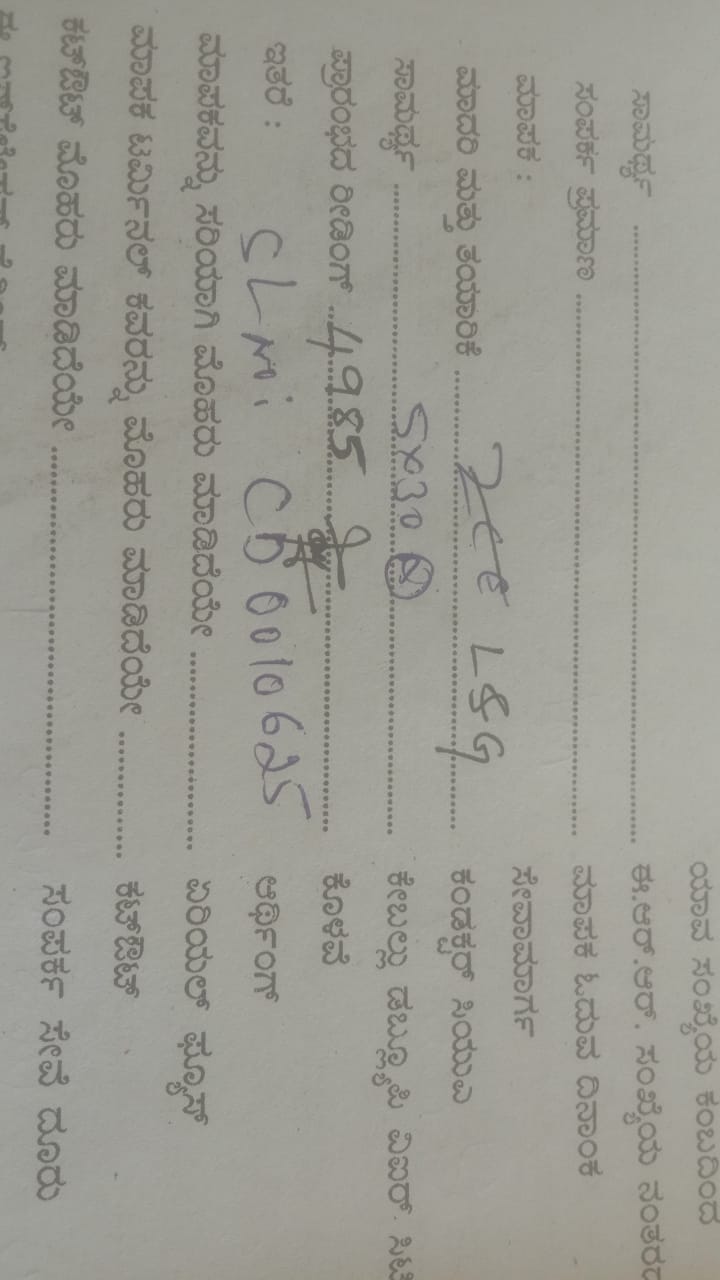 ಯಾವ ಸಂಖ್ಯೆಯ ಕಂಬದಿಂದ
ಸಾಮರ್ಥ್ಯ ........ ಈ.ಆರ್.ಆರ್. ಸಂಖ್ಯೆಯ ನಂತರದ
ಸಂಪರ್ಕ ಪ್ರಮಾಣ ........ ಮಾಪಕ ಓದುವ ದಿನಾಂಕ
ಮಾಪಕ : ಸೇವಾಮಾರ್ಗ
ಮಾದರಿ ಮತ್ತು ತಯಾರಿಕೆ ........ L&G ಕಂಡಕ್ಟರ್ ಸಿಯುಎ
ಸಾಮರ್ಥ್ಯ ........ 5X30 A ಕೇಬಲ್ಲು ಡಬ್ಲ್ಯುಪಿ ವಿಐಆರ್
ಪ್ರಾರಂಭದ ರೀಡಿಂಗ್ 4985 ಕೊಳವೆ
ಇತರೆ : SLNo: CD0010625 ಅರ್ಥಿಂಗ್
ಮಾಪಕವನ್ನು ಸರಿಯಾಗಿ ಮೊಹರು ಮಾಡಿದೆಯೇ ........ ಏರಿಯಲ್ ಫ್ಯೂಸ್
ಮಾಪಕ ಟರ್ಮಿನಲ್ ಕವರನ್ನು ಮೊಹರು ಮಾಡಿದೆಯೇ ........ ಕಟ್‌ಔಟ್
ಕಟ್‌ಔಟ್ ಮೊಹರು ಮಾಡಿದೆಯೇ ........ ಸಂಪರ್ಕ ಸೇವೆ ದೂರು